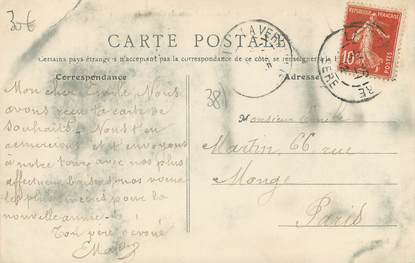 30€
CARTE POSTALE
Certains pays étrangers n'acceptant pas la correspondance de ce côté, se renseigner à
Correspondance
Adresse
RÉPUBLIQUE FRANÇAISE
10
POSTES
LAVE
ISÈRE
38
Mon cher Emile. Nous
avons reçu ta carte de
Souhaits. Nous t'en
remercions et t'envoyons
à notre tour avec nos plus
affectueux baisers, nos voeux
les plus sincères pour la
nouvelle année.
Ton père dévoué
Monsieur Emile
Martin, 66 rue
Monge
Paris